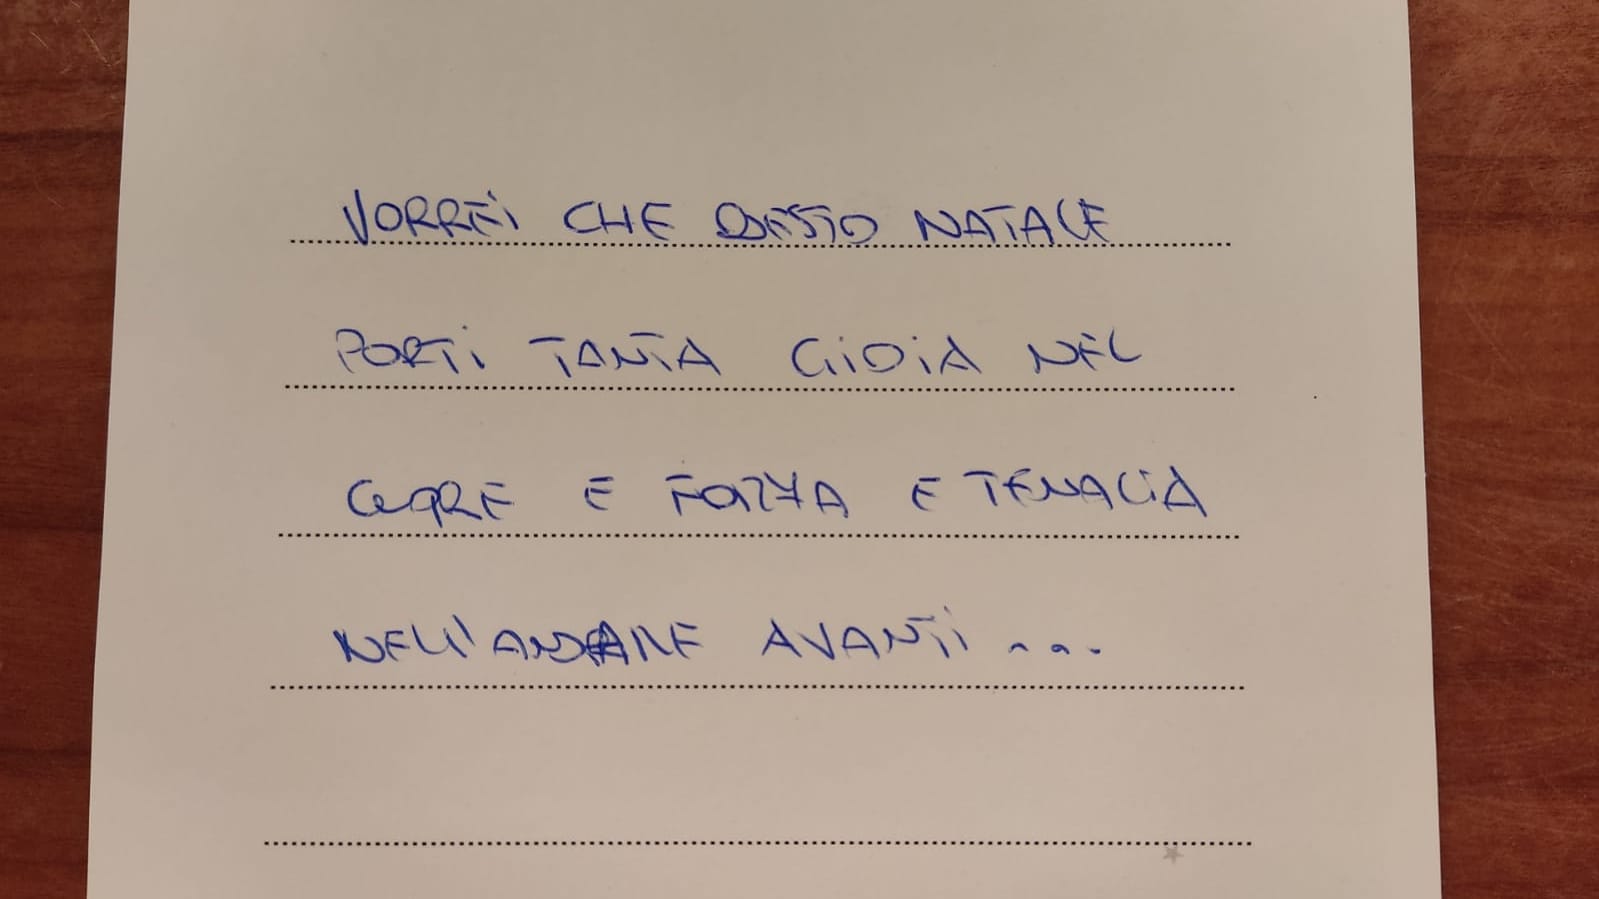 VORREI CHE QUESTO NATALE
PORTI TANTA GIOIA NEL
CUORE E FORZA E TENACIA
NELL'ANDARE AVANTI...